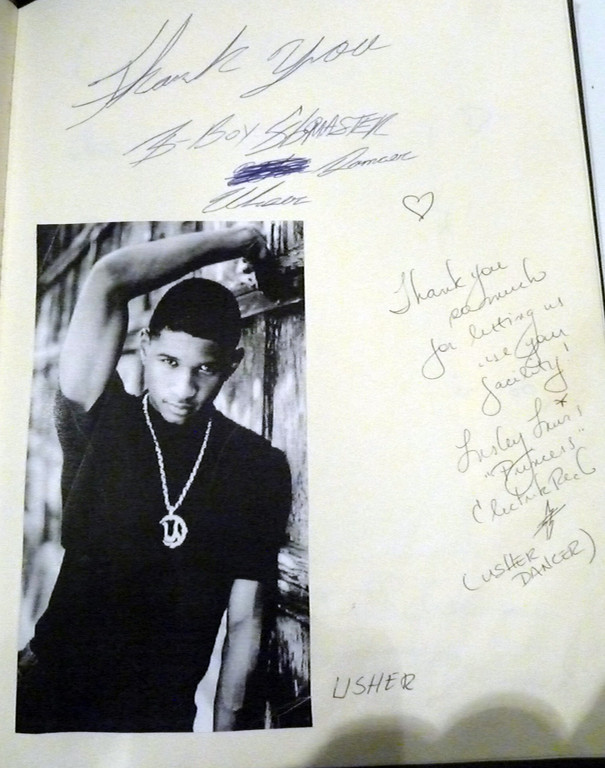 Thank You
B-Boy
Dancer
Usher
Thank you
so much
for letting us
use your
facility!
Lesley
"Princess"
(USHER
DANCER)
U
USHER